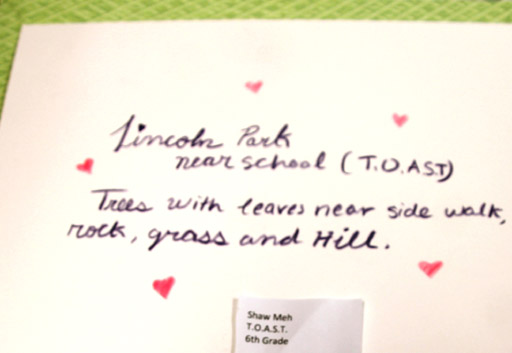 Lincoln Park
near school (T.O.A.S.T)
Trees with leaves near side walk,
rock, grass and Hill.
Shaw Meh
T.O.A.S.T.
6th Grade